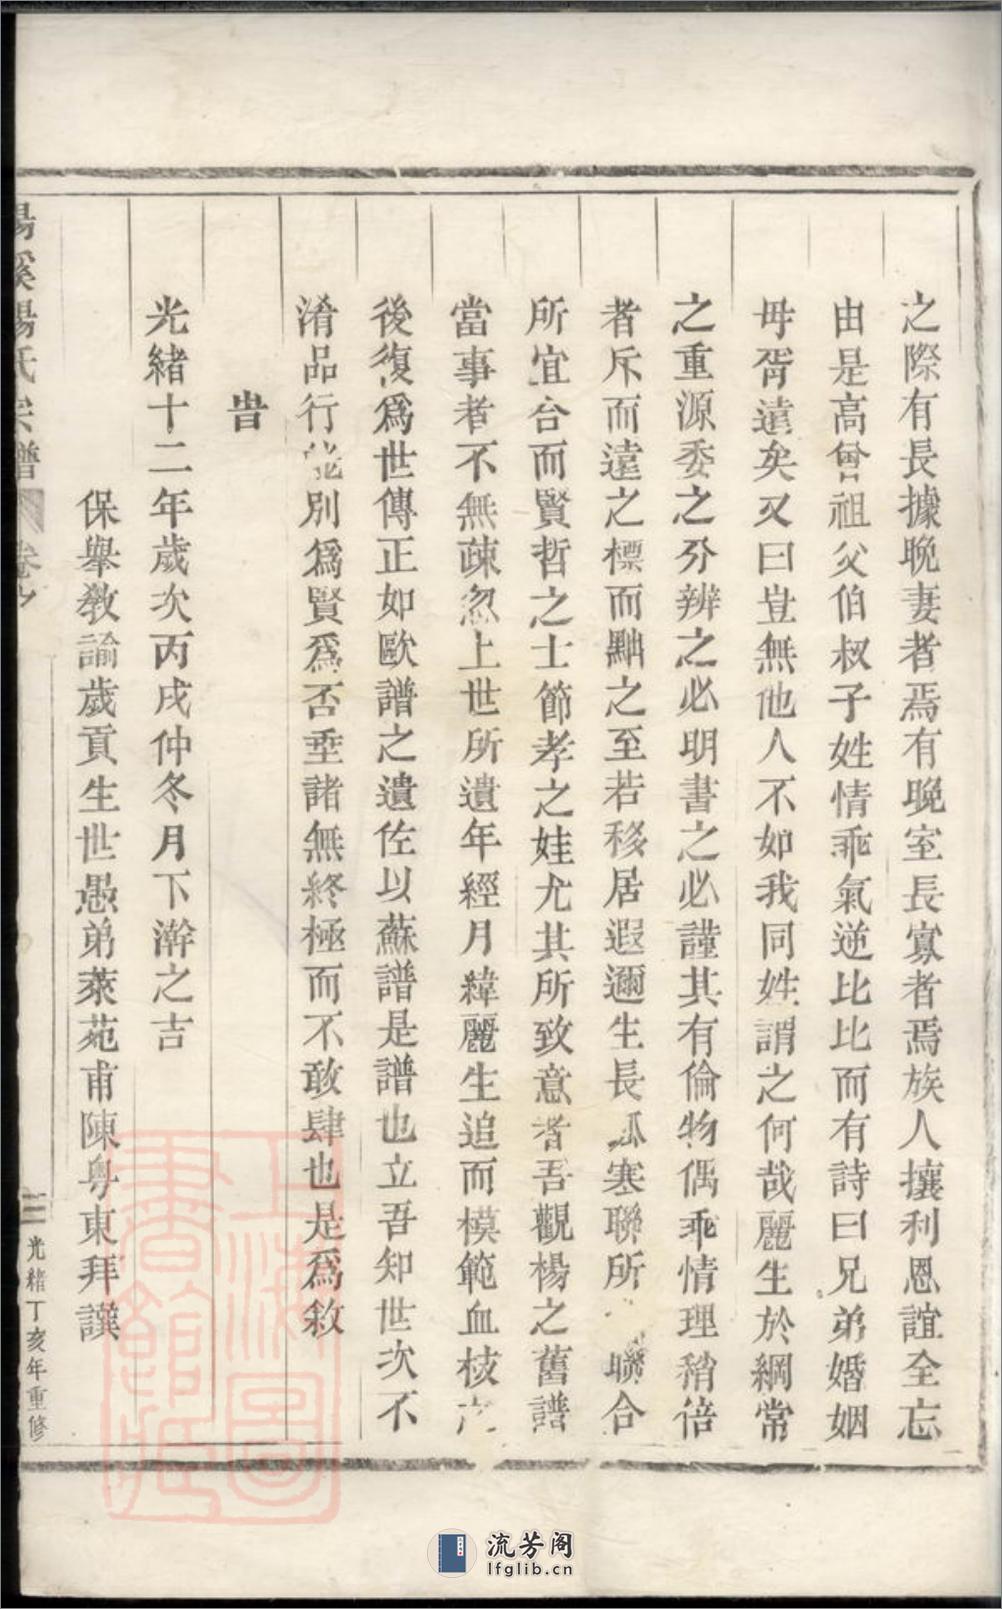 之際有長據晚妻者焉有晚室長寡者焉族人攘利恩誼全忘
由是高曾祖父伯叔子姓情乖氣逆比比而有詩曰兄弟婚姻
毋胥遠矣又曰豈無他人不如我同姓謂之何哉麗生於綱常
之重源委之分辨之必明書之必謹其有倫物偶乖情理稍倍
者斥而遠之標而黜之至若移居遐邇生長孤寒聯所聯合
所宜合而賢哲之士節孝之娃尤其所致意者吾觀楊之舊譜
當事者不無疎忽上世所遺年經月緯麗生追而模範血核
後復爲世傳正如歐譜之遺佐以蘇譜是譜也立吾知世次不
淆品行能別爲賢爲否垂諸無終極而不敢肆也是爲敘
旹
光緒十二年歲次丙戌仲冬月下澣之吉
保舉教諭歲貢生世愚弟萊苑甫陳粵東拜譔
楊溪楊氏宗譜
三
光緒丁亥年重修
上海圖書館藏
流芳阁
lfglib.cn